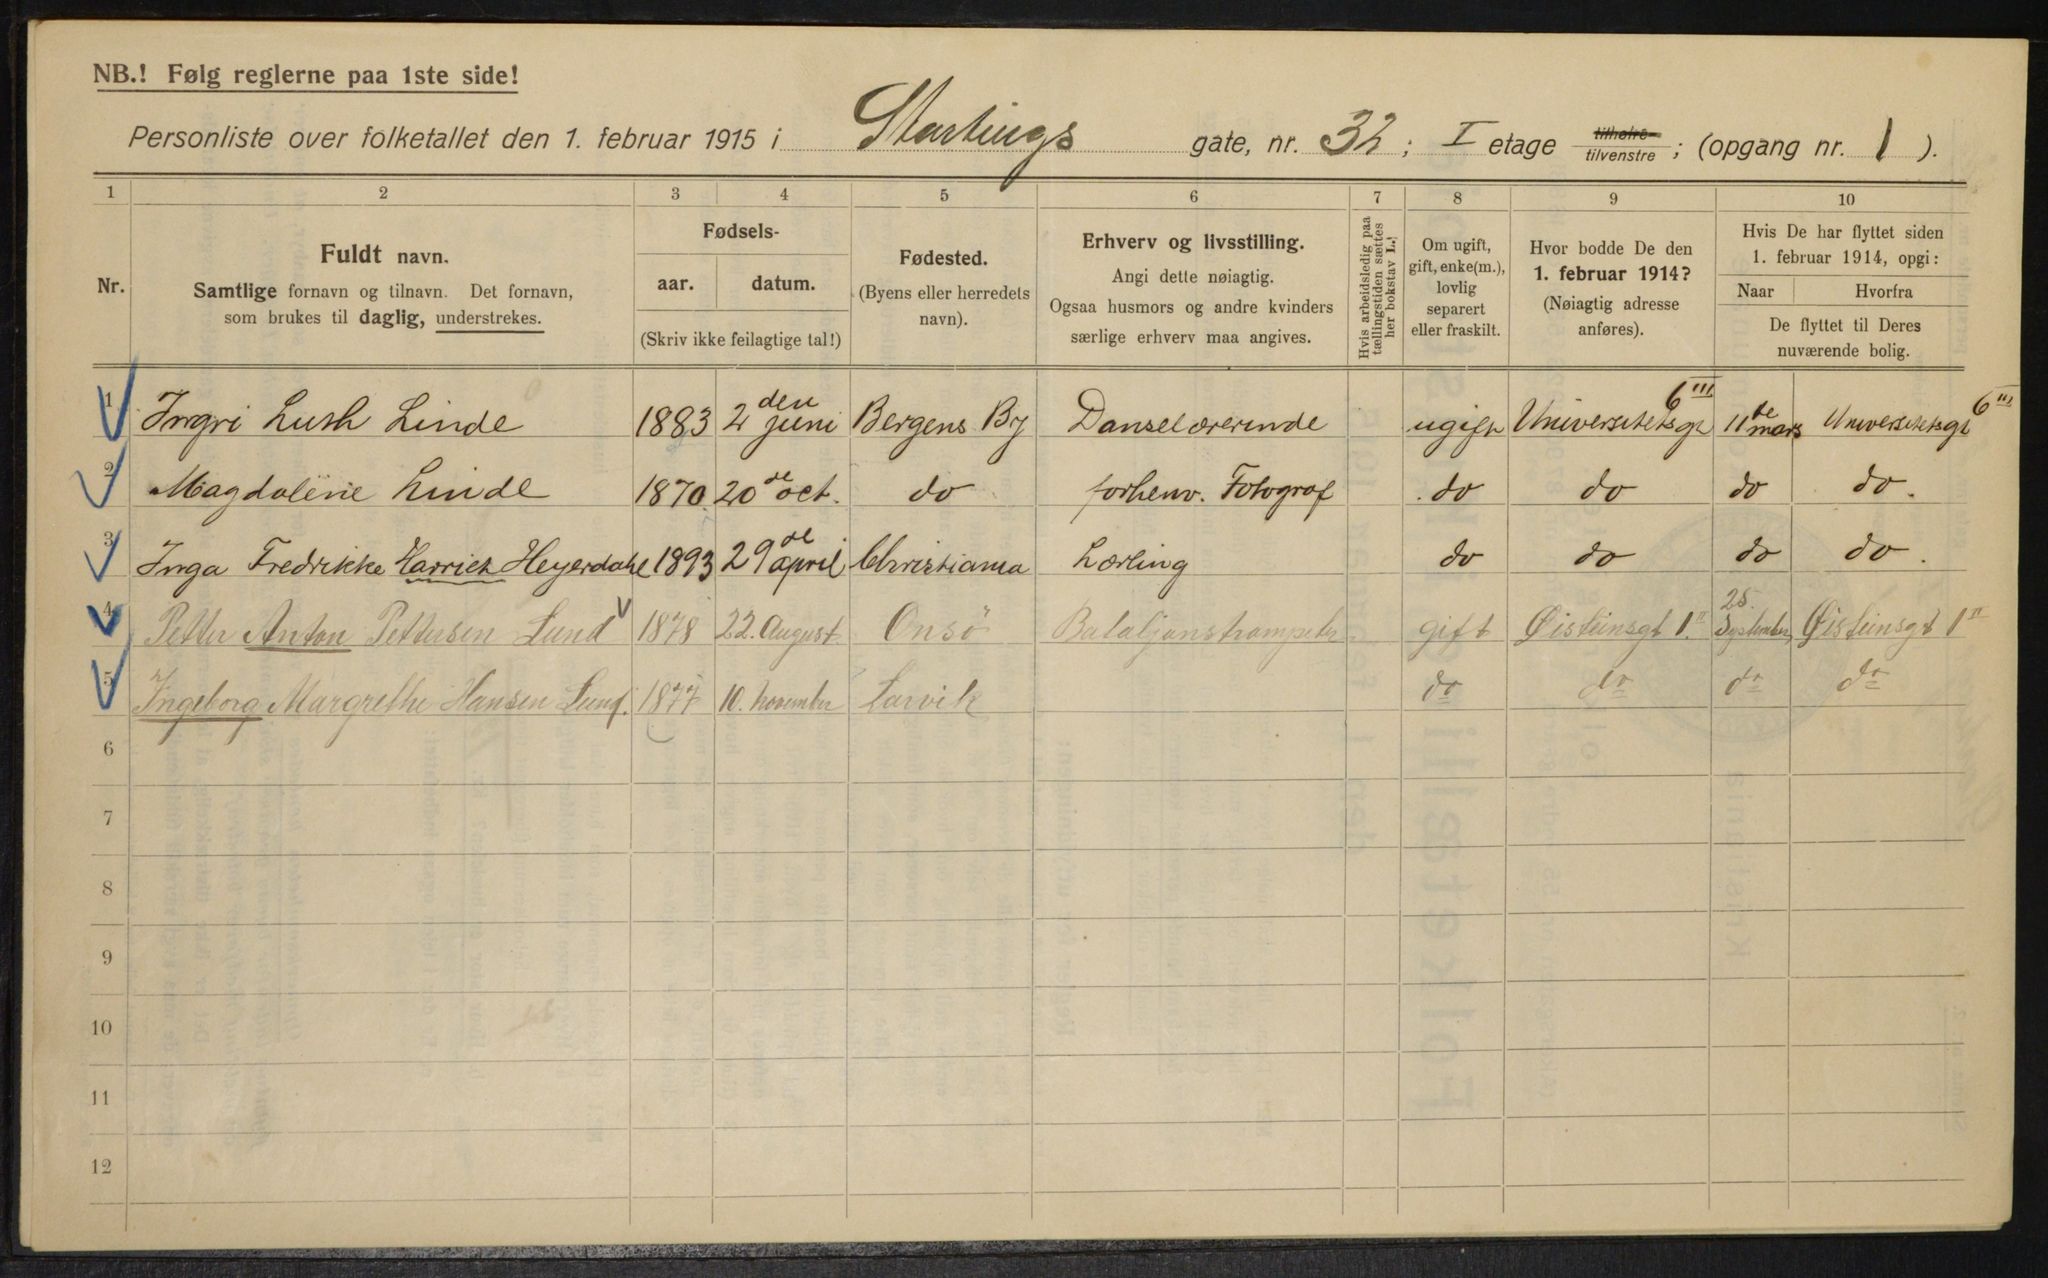 NB.! Følg reglerne paa 1ste side!
Personliste over folketallet den 1. februar 1915 i Starlings gate, nr. 32; I etage tilhøire tilvenstre; (opgang nr. 1).
1 2 3 4 5 6 7 8 9 10
Nr.
Fuldt navn.
Samtlige fornavn og tilnavn. Det fornavn,
som brukes til daglig, understrekes.
Fødsels-
aar. datum.
(Skriv ikke feilagtige tal!)
Fødested.
(Byens eller herredets
navn).
Erhverv og livsstilling.
Angi dette nøiagtig.
Ogsaa husmors og andre kvinders
særlige erhverv maa angives.
Hvis arbeidsledig paa
tællingstiden sættes
her bokstav L.!
Om ugift,
gift, enke(m.),
lovlig
separert
eller fraskilt.
Hvor bodde De den
1. februar 1914?
(Nøiagtig adresse
anføres).
Hvis De har flyttet siden
1. februar 1914, opgi:
Naar Hvorfra
De flyttet til Deres
nuværende bolig.
1 Ingri Lush Linde 1883 2den juni Bergens By Danselærerinde ugift Universitetsgt 6III 11te mars Universitetsgt 6III
2 Magdalene Linde 1870. 20de oct. do forhenv. Fotograf do do do do.
3 Inga Fredrikke Harriet Heyerdahl 1893 29de april Christiania Lærling do do do do.
4 Petter Anton Pettersen Lund 1878 22. August. Onsö Bataljonstrompeter gift Øisteinsgt 1.II 25. September Øisteinsgt 1II
5 Ingeborg Margrethe Hansen Lund. 1877 10. November Larvik do do do do
6
7
8
9
10
11
12